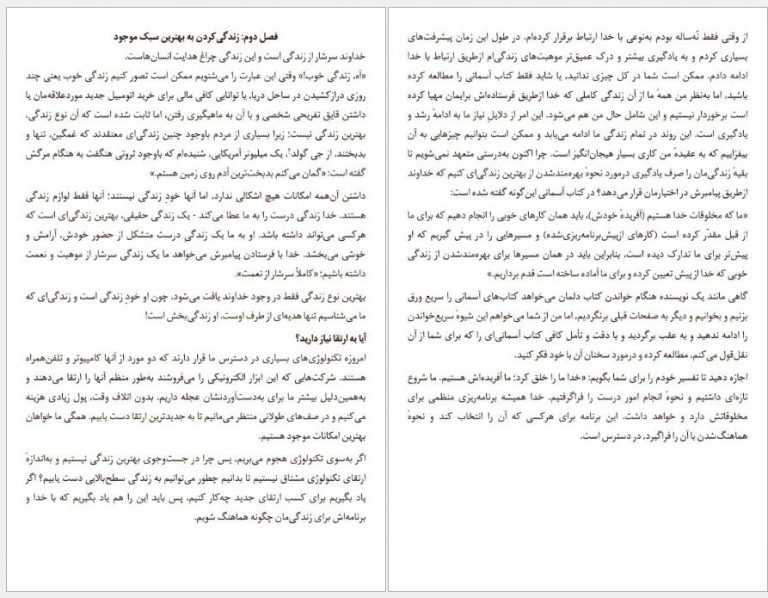 از وقتی فقط نُه‌ساله بودم به‌نوعی با خدا ارتباط برقرار کرده‌ام. در طول این زمان پیشرفت‌های
بسیاری کردم و به یادگیری بیشتر و درک عمیق‌تر موهبت‌های زندگی‌ام ازطریق ارتباط با خدا
ادامه دادم. ممکن است شما در کل چیزی ندانید، یا شاید فقط کتاب آسمانی را مطالعه کرده
باشید، اما به‌نظر من همهٔ ما از آن زندگی کاملی که خدا ازطریق فرستاده‌اش برایمان مهیا کرده
است برخوردار نیستیم و این شامل حال من هم می‌شود. این امر از دلایلِ نیاز ما به ادامهٔ رشد و
یادگیری است. این روند در تمام زندگی ما ادامه می‌یابد و ممکن است بتوانیم چیزهایی به آن
بیفزاییم که به عقیدهٔ من کاری بسیار هیجان‌انگیز است. چرا اکنون به‌درستی متعهد نمی‌شویم تا
بقیهٔ زندگی‌مان را صرف یادگیری درمورد نحوهٔ بهره‌مندشدن از بهترین زندگی‌ای کنیم که خداوند
ازطریق پیامبرش در اختیارمان قرار می‌دهد؟ در کتاب آسمانی این‌گونه گفته شده است:
«ما که مخلوقات خدا هستیم (آفریدهٔ خودش)، باید همان کارهای خوبی را انجام دهیم که برای ما
از قبل مقدّر کرده است (کارهای ازپیش‌برنامه‌ریزی‌شده) و مسیرهایی را در پیش گیریم که او
پیش‌تر برای ما تدارک دیده است، بنابراین باید در همان مسیرها برای بهره‌مندشدن از زندگی
خوبی که خدا از پیش تعیین کرده و برای ما آماده ساخته است قدم برداریم.»
گاهی مانند یک نویسنده هنگام خواندن کتاب دلمان می‌خواهد کتاب‌های آسمانی را سریع ورق
بزنیم و بخوانیم و دیگر به صفحات قبلی برنگردیم، اما من از شما می‌خواهم این شیوهٔ سریع‌خواندن
را ادامه ندهید و به عقب برگردید و با دقت و تأمل کافی کتاب آسمانی‌ای را که برای شما از آن
نقل‌قول می‌کنم، مطالعه کرده و درمورد سخنان آن با خود فکر کنید.
اجازه دهید تا تفسیر خودم را برای شما بگویم: «خدا ما را خلق کرد؛ ما آفریده‌اش هستیم. ما شروع
تازه‌ای داشتیم و نحوهٔ انجام امور درست را فراگرفتیم. خدا همیشه برنامه‌ریزی منظمی برای
مخلوقاتش دارد و خواهد داشت. این برنامه برای هرکسی که آن را انتخاب کند و نحوهٔ
هماهنگ‌شدن با آن را فراگیرد، در دسترس است.
فصل دوم: زندگی‌کردن به بهترین سبک موجود
خداوند سرشار از زندگی است و این زندگی چراغ هدایت انسان‌هاست.
«آه، زندگی خوب!» وقتی این عبارت را می‌شنویم ممکن است تصور کنیم زندگی خوب یعنی چند
روزی درازکشیدن در ساحل دریا، یا توانایی کافی مالی برای خرید اتومبیل جدید موردعلاقه‌مان یا
داشتن قایق تفریحی شخصی و با آن به ماهیگیری رفتن، اما ثابت شده است که آن نوع زندگی،
بهترین زندگی نیست؛ زیرا بسیاری از مردم باوجود چنین زندگی‌ای معتقدند که غمگین، تنها و
بدبختند. از جی گولد۲، یک میلیونر آمریکایی، شنیده‌ام که باوجود ثروتی هنگفت به هنگام مرگش
گفته است: «گمان می‌کنم بدبخت‌ترین آدم روی زمین هستم.»
داشتن آن‌همه امکانات هیچ اشکالی ندارد، اما آنها خودِ زندگی نیستند؛ آنها فقط لوازم زندگی
هستند. خدا زندگی درست را به ما عطا می‌کند - یک زندگی حقیقی، بهترین زندگی‌ای است که
هرکسی می‌تواند داشته باشد. او به ما یک زندگی درست متشکل از حضور خودش، آرامش و
خوشی می‌بخشد. خدا با فرستادن پیامبرش می‌خواهد ما یک زندگی سرشار از موهبت و نعمت
داشته باشیم؛ «کاملاً سرشار از نعمت».
بهترین نوع زندگی فقط در وجود خداوند یافت می‌شود، چون او خودِ زندگی است و زندگی‌ای که
ما می‌شناسیم تنها هدیه‌ای از طرف اوست، او زندگی‌بخش است!
آیا به ارتقا نیاز دارید؟
امروزه تکنولوژی‌های بسیاری در دسترس ما قرار دارند که دو مورد از آنها کامپیوتر و تلفن‌همراه
هستند. شرکت‌هایی که این ابزار الکترونیکی را می‌فروشند به‌طور منظم آنها را ارتقا می‌دهند و
به‌همین‌دلیل بیشتر ما برای به‌دست‌آوردنشان عجله داریم. بدون اتلاف وقت، پول زیادی هزینه
می‌کنیم و در صف‌های طولانی منتظر می‌مانیم تا به جدیدترین ارتقا دست یابیم. همگی ما خواهان
بهترین امکانات موجود هستیم.
اگر به‌سوی تکنولوژی هجوم می‌بریم، پس چرا در جست‌وجوی بهترین زندگی نیستیم و به‌اندازهٔ
ارتقای تکنولوژی مشتاق نیستیم تا بدانیم چطور می‌توانیم به زندگی سطح‌بالایی دست یابیم؟ اگر
یاد بگیریم برای کسب ارتقای جدید چه‌کار کنیم، پس باید این را هم یاد بگیریم که با خدا و
برنامه‌اش برای زندگی‌مان چگونه هماهنگ شویم.